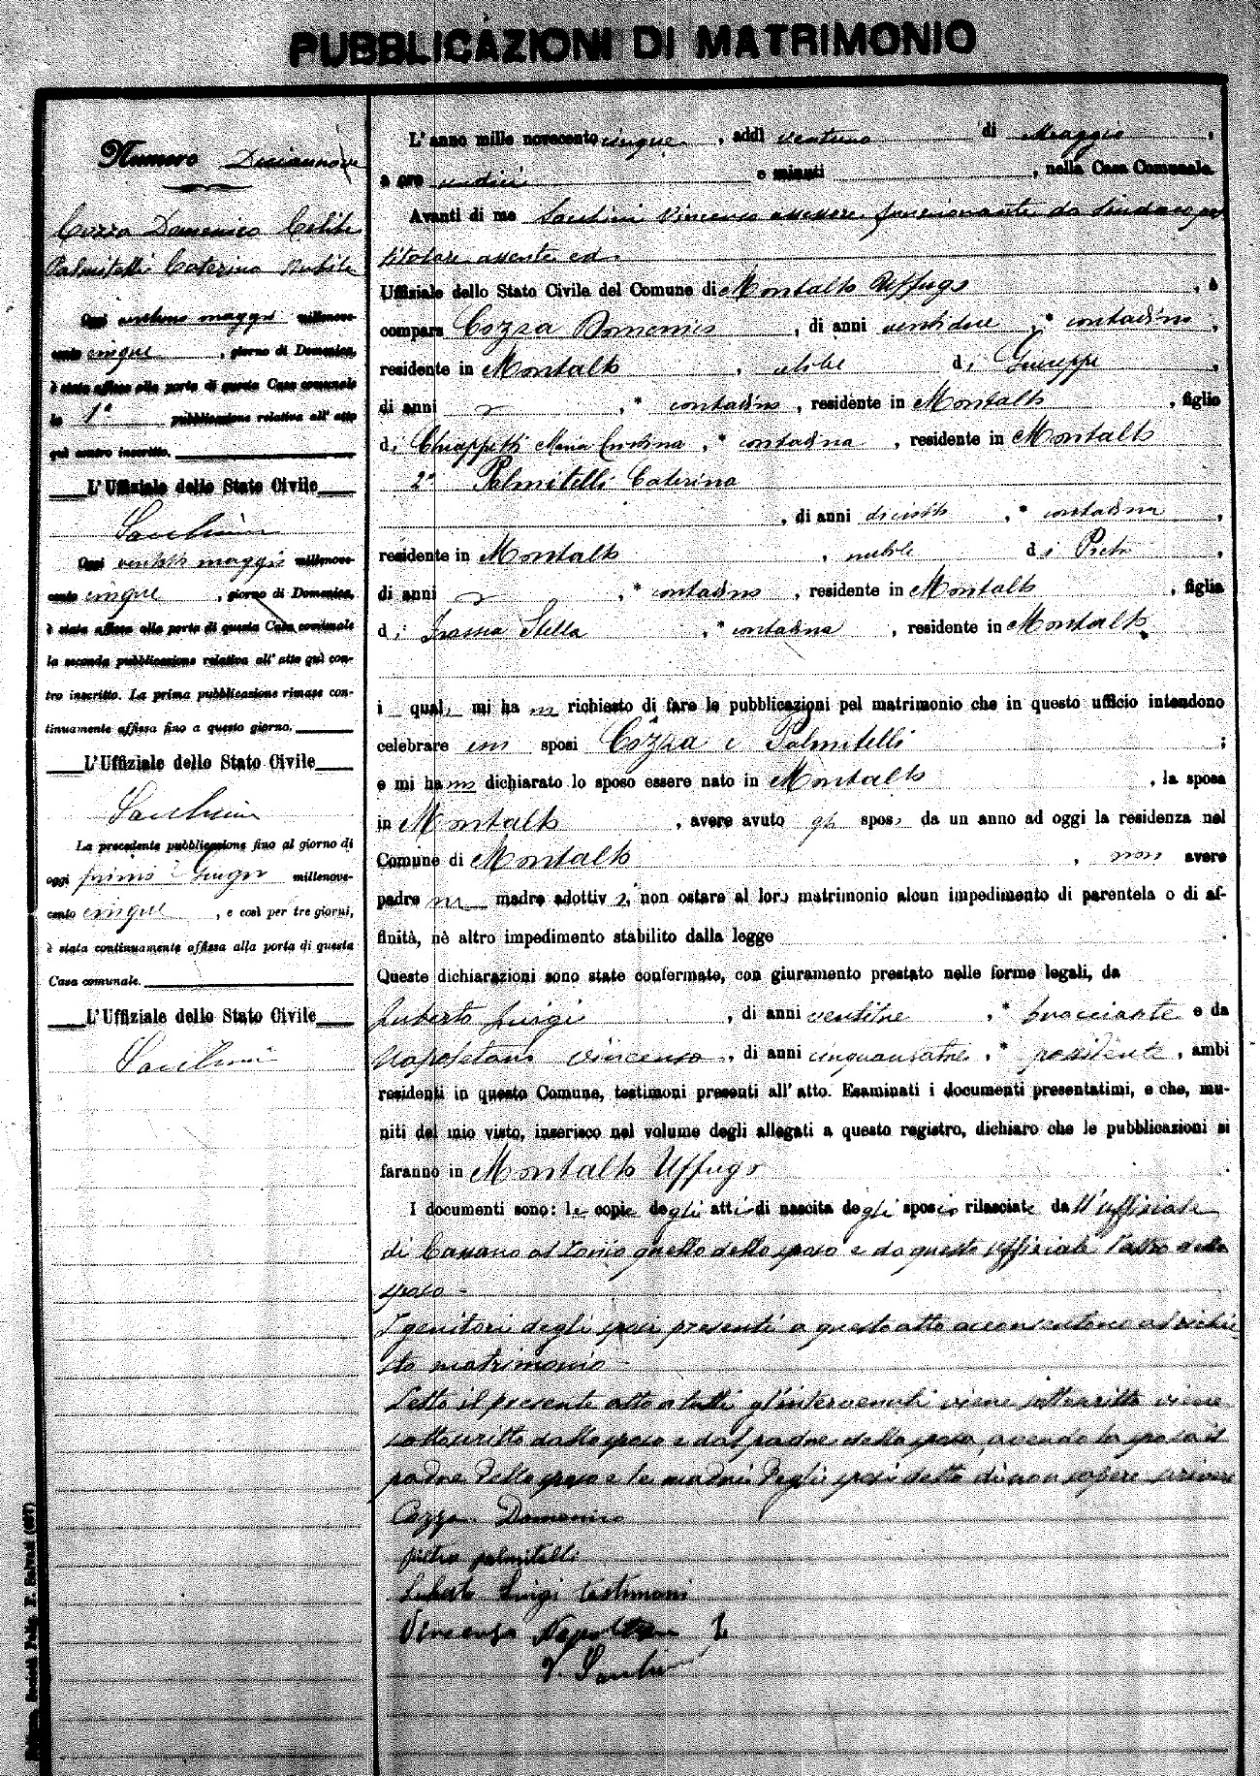 PUBBLICAZIONI DI MATRIMONIO
Numero Diciannove
Cozza Domenico Celibe
Palmitelli Caterina Nubile
Oggi ventuno maggio millenove-
cento cinque, giorno di Domenica,
è stata affissa alla porta di questa Casa comunale
la 1ª pubblicazione relativa all'atto
quì contro inscritto.
L'Uffiziale dello Stato Civile
Oggi ventotto maggio millenove-
cento cinque, giorno di Domenica,
è stata affissa alla porta di questa Casa comunale
la seconda pubblicazione relativa all'atto quì con-
tro inscritto. La prima pubblicazione rimase con-
tinuamente affissa fino a questo giorno.
L'Uffiziale dello Stato Civile
La precedente pubblicazione fino al giorno di
oggi primo Giugno millenove-
cento cinque, e così per tre giorni,
è stata continuamente affissa alla porta di questa
Casa comunale.
L'Uffiziale dello Stato Civile
L'anno mille novecento cinque, addì ventuno di Maggio,
a ore undici e minuti, nella Casa Comunale.
Avanti di me Vincenzo assessore funzionante da Sindaco pel
titolare assente ed
Uffiziale dello Stato Civile del Comune di Montalto Uffugo, è
compars Cozza Domenico, di anni ventidue, * contadino,
residente in Montalto, celibe di Giuseppe,
di anni, * contadino, residente in Montalto, figlio
di Chiappetta Maria, * contadina, residente in Montalto
2° Palmitelli Caterina
, di anni diciotto, * contadina,
residente in Montalto, nubile di Pietro,
di anni, * contadino, residente in Montalto, figlia
di Stella, * contadina, residente in Montalto
i quali mi hanno richiesto di fare le pubblicazioni pel matrimonio che in questo ufficio intendono
celebrare essi sposi Cozza e Palmitelli;
e mi hanno dichiarato lo sposo essere nato in Montalto, la sposa
in Montalto, avere avuto gli sposi da un anno ad oggi la residenza nel
Comune di Montalto, non avere
padre nè madre adottivi, non ostare al loro matrimonio alcun impedimento di parentela o di af-
finità, nè altro impedimento stabilito dalla legge.
Queste dichiarazioni sono state confermate, con giuramento prestato nelle forme legali, da
Luberto Luigi, di anni ventitre, * bracciante e da
Napoletano Vincenzo, di anni cinquantatre, * possidente, ambi
residenti in questo Comune, testimoni presenti all'atto. Esaminati i documenti presentatimi, e che, mu-
niti del mio visto, inserisco nel volume degli allegati a questo registro, dichiaro che le pubblicazioni si
faranno in Montalto Uffugo.
I documenti sono: le copie degli atti di nascita degli sposi rilasciate dall'uffiziale
di Cassano al Ionio quello dello sposo e da questo uffiziale l'altro della
sposa.
I genitori degli sposi presenti a questo atto acconsentono al richie
sto matrimonio
Letto il presente atto a tutti gl'intervenuti viene sottoscritto viene
sottoscritto dallo sposo e dal padre della sposa avendo la sposa il
padre dello sposo e le madri degli sposi detto di non sapere scrivere
Cozza Domenico
pietro palmitelli
Luberto Luigi testimoni
Vincenzo Napoletano